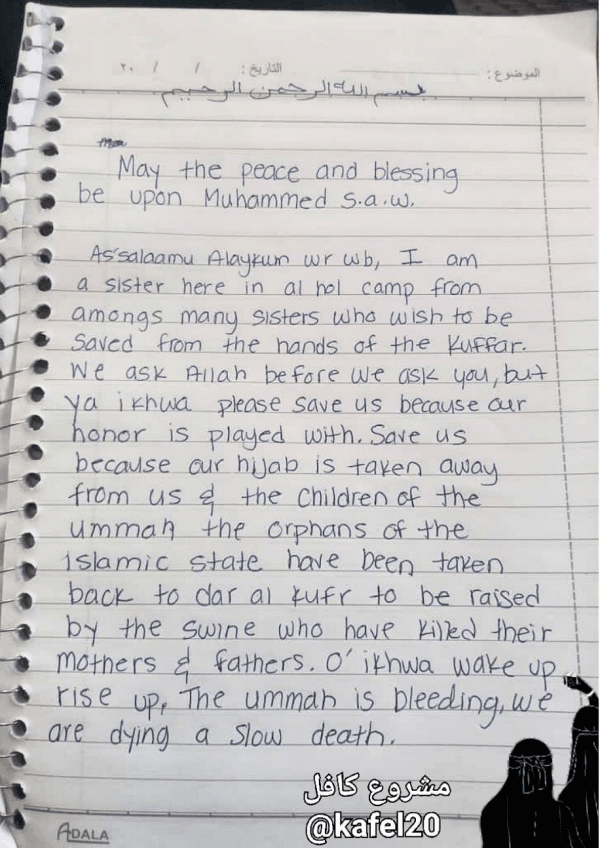 التاريخ : / / ٢٠ الموضوع :
بسم الله الرحمن الرحيم
May the peace and blessing
be upon Muhammed s.a.w.
As'salaamu Alaykum wr wb, I am
a sister here in al hol camp from
amongs many sisters who wish to be
saved from the hands of the Kuffar.
We ask Allah before we ask you, but
ya ikhwa please save us because our
honor is played with. Save us
because our hijab is taken away
from us & the children of the
ummah the orphans of the
islamic state have been taken
back to dar al kufr to be raised
by the swine who have killed their
mothers & fathers. O' ikhwa wake up
rise up, The ummah is bleeding, we
are dying a slow death.
مشروع كافل
@kafel20
ADALA